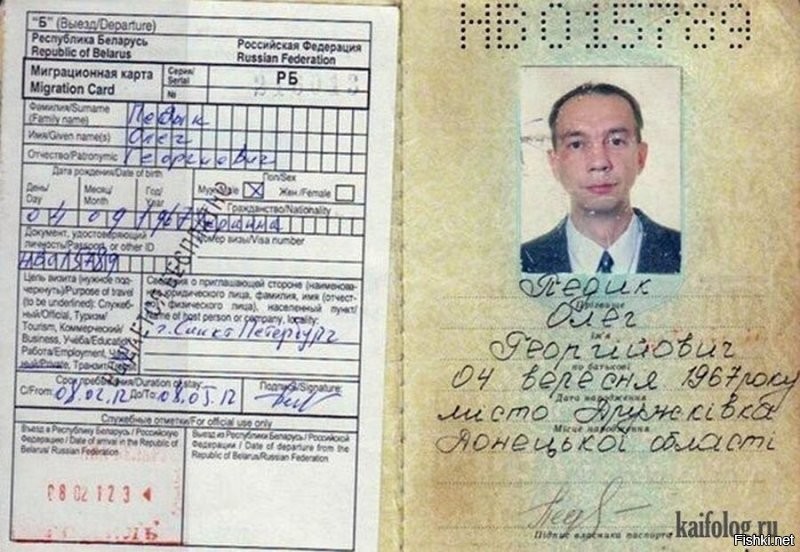 "Б" (Выезд/Departure)
Республика Беларусь
Republic of Belarus
Российская Федерация
Russian Federation
Миграционная карта
Migration Card
Серия/
Serial
РБ
№
Фамилия/Surname
(Family name)
Педик
Имя/Given name(s)
Олег
Отчество/Patronymic
Георгиевич
Дата рождения/Date of birth
Пол/Sex
День/
Day
Месяц/
Month
Год/
Year
Муж./Male
Жен./Female
04 09 1967
Гражданство/Nationality
Украина
Документ, удостоверяющий
личность/Passport, or other ID
Номер визы/Visa number
НВ015789
Цель визита (нужное под-
черкнуть)/Purpose of travel
(to be underlined): Служеб-
ный/Official, Туризм/
Tourism, Коммерческий/
Business, Учёба/Education,
Работа/Employment, Част-
ный/Private, Транзит/
Сведения о приглашающей стороне (наименова-
юридического лица, фамилия, имя (отчест-
физического лица), населенный пункт/
Name of host person or company, locality:
г. Санкт Петербург
Срок пребывания/Duration of stay:
С/From: 08.02.12 До/To: 08.05.12
Подпись/Signature:
Служебные отметки/For official use only
Въезд в Республику Беларусь / Российскую
Федерацию / Date of arrival in the Republic of
Belarus/ Russian Federation
Выезд из Республики Беларусь / Российской
Федерации / Date of departure from the
Republic of Belarus/Russian Federation
08 02 12 3
НВ015789
Педик
Прізвище
Олег
Ім'я
Георгійович
по батькові
04 вересня 1967 року
Дата народження
місто Дружківка
Місце народження
Донецької області
Підпис власника паспорта
kaifolog.ru
Fishki.net